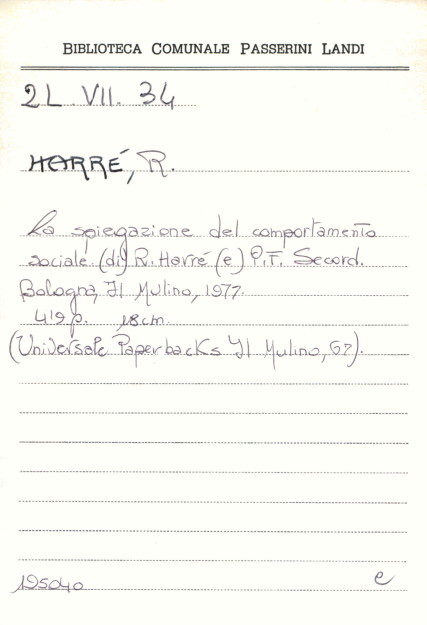 BIBLIOTECA COMUNALE PASSERINI LANDI
2L.VII.34
HARRÉ, R.
La spiegazione del comportamento
sociale (di) R. Harré (e) P.F. Secord.
Bologna, Il Mulino, 1977.
419 p. 18 cm.
(Universale Paperbacks Il Mulino, 67).
195040 e